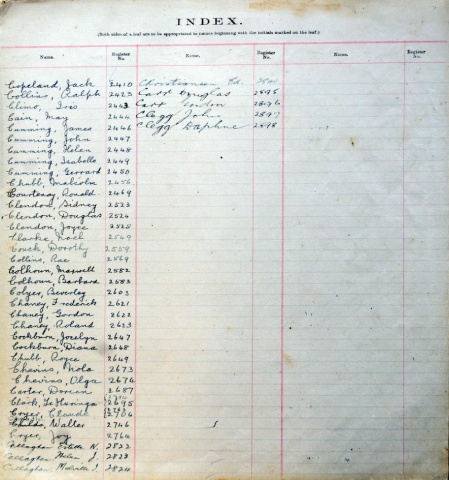 INDEX.
(Both sides of a leaf are to be appropriated to names beginning with the initials marked on the leaf.)
Name. Register No. Name. Register No. Name. Register No.
Copeland, Jack 2410
Collins, Ralph 2423
Cline, Iris 2443
Cain, May 2444
Cumming, James 2446
Cumming, John 2447
Cumming, Helen 2448
Cumming, Isabella 2449
Cumming, Gerrard 2450
Chubb, Malcolm 2456
Courtenay, Ronald 2469
Clendon, Sidney 2523
Clendon, Douglas 2524
Clendon, Joyce 2525
Clarke, Noel 2549
Couch, Dorothy 2559
Collins, Rae 2569
Colhoun, Maxwell 2582
Colhoun, Barbara 2583
Colyer, Beverley 2602
Chaney, Frederick 2621
Chaney, Gordon 2622
Chaney, Roland 2623
Cockburn, Jocelyn 2647
Cockburn, Diana 2648
Chubb, Royce 2649
Chevins, Nola 2673
Chevins, Olga 2674
Carter, Dorian 2687
Clark, 2695
Claude 2704
Childs, Walter 2746
Joy 2764
Callaghan N. 2822
Callaghan Helen J. 2823
Callaghan Melville J. 2824
Christianson Ed.
Carr Douglas 2895
Carr Gordon 2896
Clegg John 2897
Clegg Daphne 2898